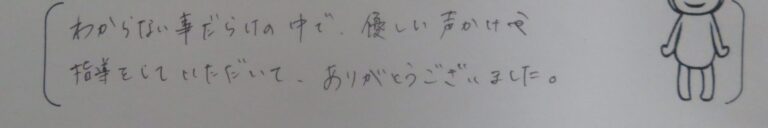 わからない事だらけの中で、優しい声かけや
指導をしていただいて、ありがとうございました。